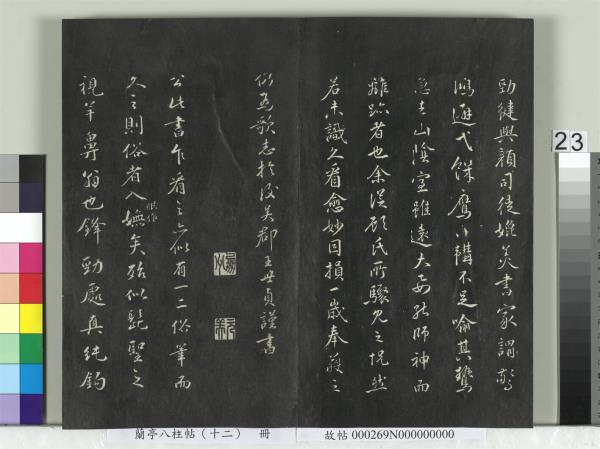 勁健與顏司徒媲美書家謂驚
鴻避弋鷹下韝不足喻其鷙
急去山陰室雖遠大要能師神而
離跡者也余從顧氏所驟見之怳然
若未識久看愈妙因損一歲奉獲之
仍為歌志於後吳郡王世貞謹書
公此書乍看之亦似有一二俗筆而
久之則俗者入嫵矣殆似髭聖之
視羊鼻翁也鋒勁處真純鉤
23
蘭亭八柱帖（十二） 冊
故帖 000269N000000000